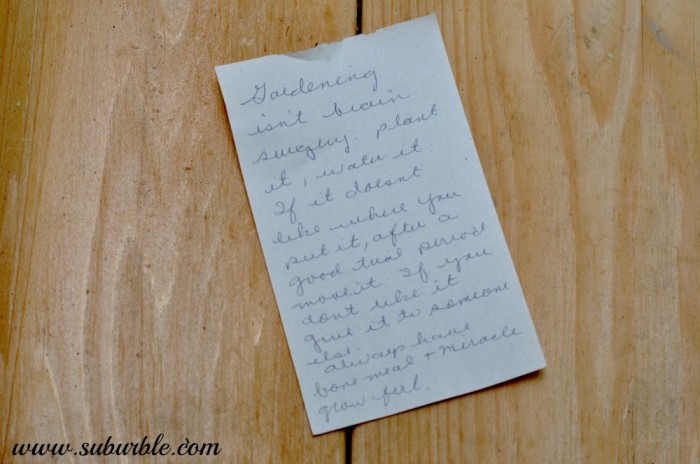 Gardening
isn't brain
surgery. plant
it, water it.
If it doesn't
like where you
put it, after a
good trial period
move it. If you
don't like it
give it to someone
else.
always have
bonemeal + Miracle
grow fert.
www.suburble.com